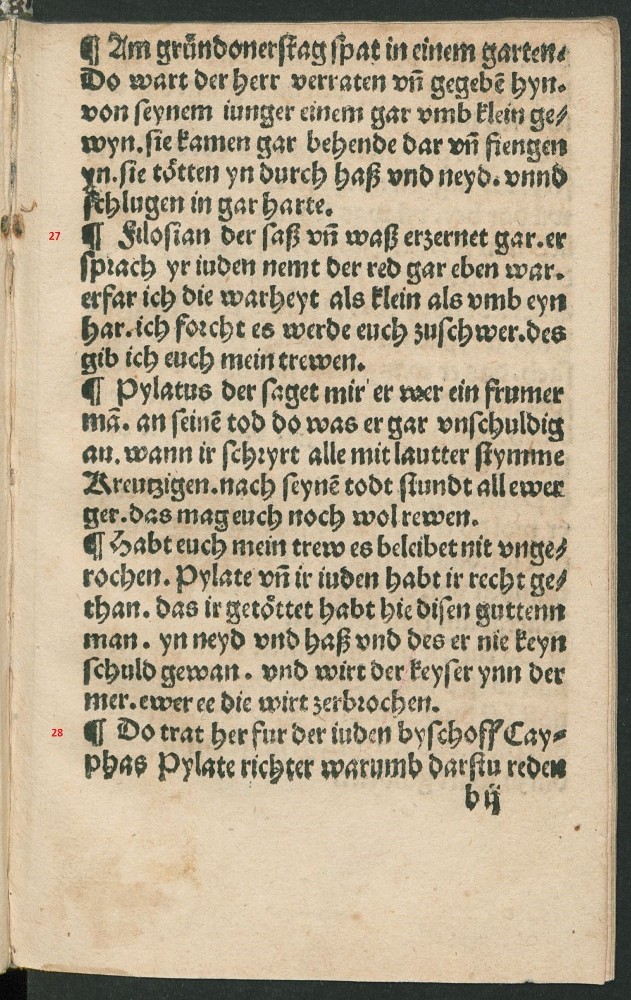 ¶ Am gründonerstag spat in einem garten.
Do wart der herr verraten vn̄ gegebē hyn.
von seynem iunger einem gar vmb klein ge⸗
wyn. sie kamen gar behende dar vn̄ fiengen
yn. sie tötten yn durch haß vnd neyd. vnnd
schlugen in gar harte.
27 ¶ Filosian der saß vn̄ waß erzernet gar. er
sprach yr iuden nemt der red gar eben war.
erfar ich die warheyt als klein als vmb eyn
har. ich forcht es werde euch zuschwer. des
gib ich euch mein trewen.
¶ Pylatus der saget mir er wer ein frumer
mā. an seinē tod do was er gar vnschuldig
an. wann ir schryrt alle mit lautter stymme
Kreutzigen. nach seynē todt stundt all ewer
ger. das mag euch noch wol rewen.
¶ Habt euch mein trew es beleibet nit vnge⸗
rochen. Pylate vn̄ ir iuden habt ir recht ge⸗
than. das ir getöttet habt hie disen guttenn
man. yn neyd vnd haß vnd des er nie keyn
schuld gewan. vnd wirt der keyser ynn der
mer. ewer ee die wirt zerbrochen.
28 ¶ Do trat her fur der iuden byschoff Cay⸗
phas Pylate richter warumb darstu reden
b ij